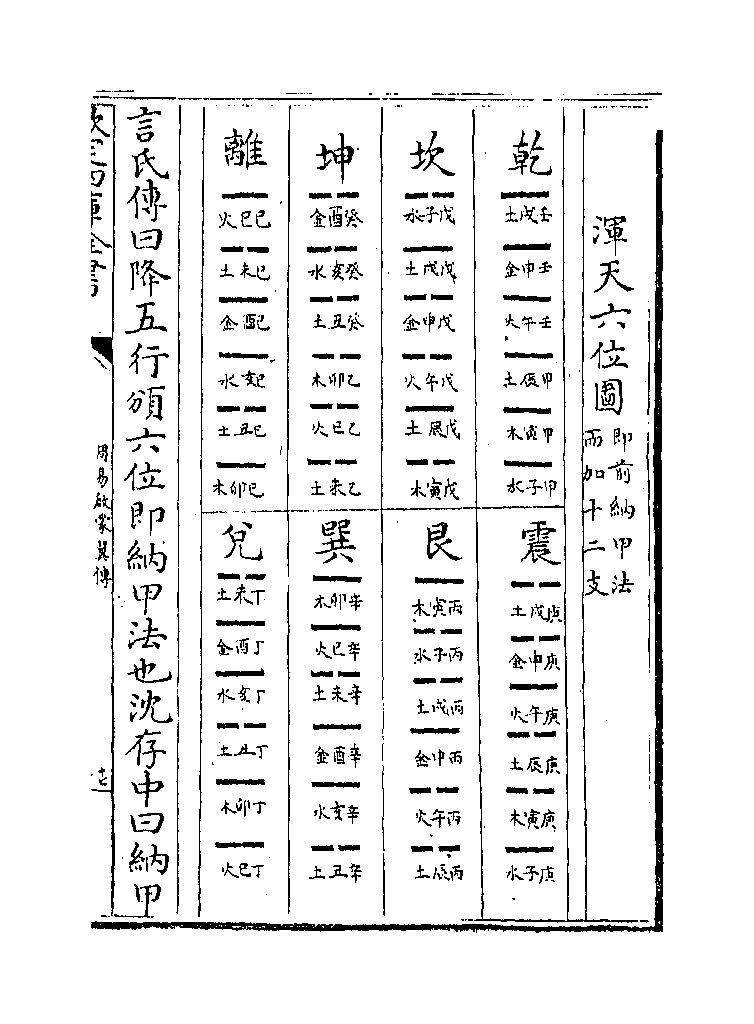 渾天六位圖
即前納甲法
而加十二支
乾
壬戌土
壬申金
壬午火
甲辰土
甲寅木
甲子水
震
庚戌土
庚申金
庚午火
庚辰土
庚寅木
庚子水
坎
戊子水
戊戌土
戊申金
戊午火
戊辰土
戊寅木
艮
丙寅木
丙子水
丙戌土
丙申金
丙午火
丙辰土
坤
癸酉金
癸亥水
癸丑土
乙卯木
乙巳火
乙未土
巽
辛卯木
辛巳火
辛未土
辛酉金
辛亥水
辛丑土
離
巳巳火
巳未土
巳酉金
巳亥水
巳丑土
巳卯木
兌
丁未土
丁酉金
丁亥水
丁丑土
丁卯木
丁巳火
言氏傳曰降五行頒六位即納甲法也沈存中曰納甲
欽定四庫全書
周易啟蒙翼傳